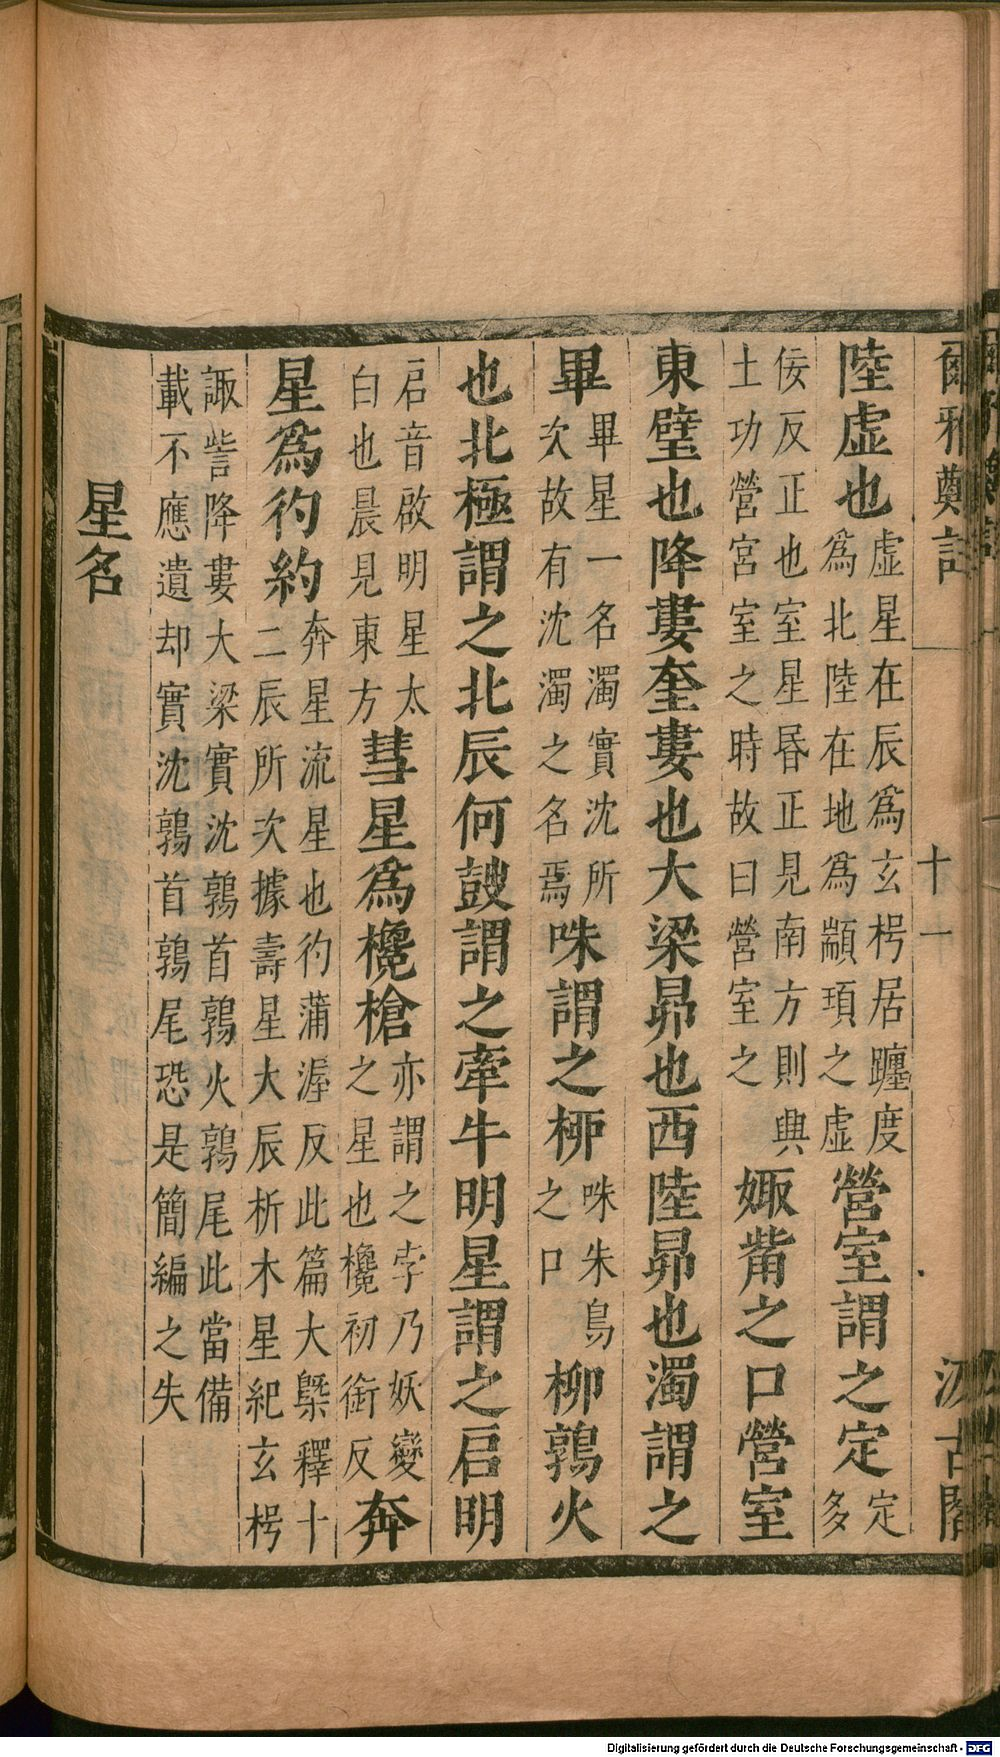 爾雅鄭註 十一 汲古閣
陸虛也虛星在辰爲玄枵居躔度爲北陸在地爲顓頊之虛營室謂之定定多
佞反正也室星昏正見南方則興土功營宮室之時故曰營室之娵觜之口營室
東壁也降婁奎婁也大梁昴也西陸昴也濁謂之
畢畢星一名濁實沈所次故有沈濁之名焉咮謂之柳咮朱鳥之口柳鶉火
也北極謂之北辰何鼓謂之牽牛明星謂之启明
启音啟明星太白也晨見東方彗星爲欃槍亦謂之孛乃妖變之星也欃初銜反奔
星爲彴約奔星流星也彴蒲渥反此篇大槩釋十二辰所次據壽星大辰析木星紀玄枵
諏訾降婁大梁實沈鶉首鶉火鶉尾此當備載不應遺却實沈鶉首鶉尾恐是簡編之失
星名
Digitalisierung gefördert durch die Deutsche Forschungsgemeinschaft - DFG